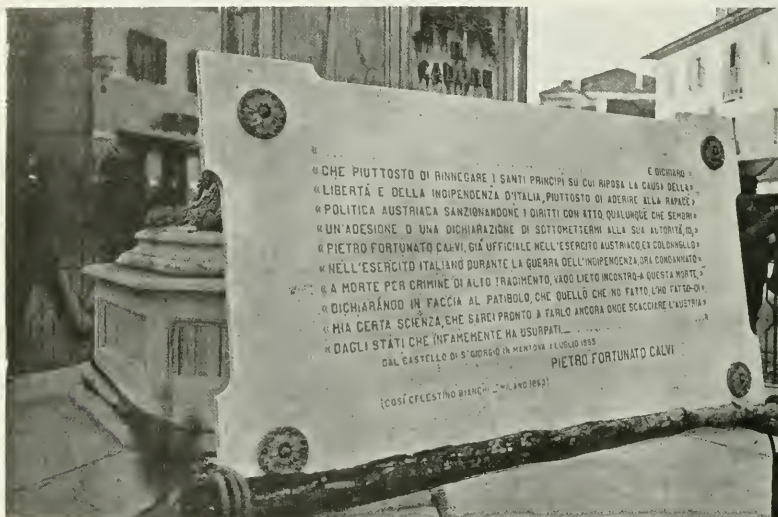 CADORE
« ... E DICHIARO »
« CHE PIUTTOSTO DI RINNEGARE I SANTI PRINCIPI SU CUI RIPOSA LA CAUSA DELLA »
« LIBERTÁ E DELLA INDIPENDENZA D'ITALIA, PIUTTOSTO DI ADERIRE ALLA RAPACE »
« POLITICA AUSTRIACA SANZIONANDONE I DIRITTI CON ATTO, QUALUNQUE CHE SEMBRI »
« UN'ADESIONE O UNA DICHIARAZIONE DI SOTTOMETTERMI ALLA SUA AUTORITÁ, IO, »
« PIETRO FORTUNATO CALVI, GIÁ UFFICIALE NELL'ESERCITO AUSTRIACO, EX COLONNELLO »
« NELL'ESERCITO ITALIANO DURANTE LA GUERRA DELL'INDIPENDENZA, ORA CONDANNATO »
« A MORTE PER CRIMINE DI ALTO TRADIMENTO, VADO LIETO INCONTRO A QUESTA MORTE, »
« DICHIARANDO IN FACCIA AL PATIBOLO, CHE QUELLO CHE HO FATTO, L'HO FATTO DI »
« MIA CERTA SCIENZA, CHE SAREI PRONTO A FARLO ANCORA ONDE SCACCIARE L'AUSTRIA »
« DAGLI STATI CHE INFAMEMENTE HA USURPATI ... »
DAL CASTELLO DI S. GIORGIO IN MANTOVA 1 LUGLIO 1855
PIETRO FORTUNATO CALVI
(COSÍ CELESTINO BIANCHI _ MILANO 1863)